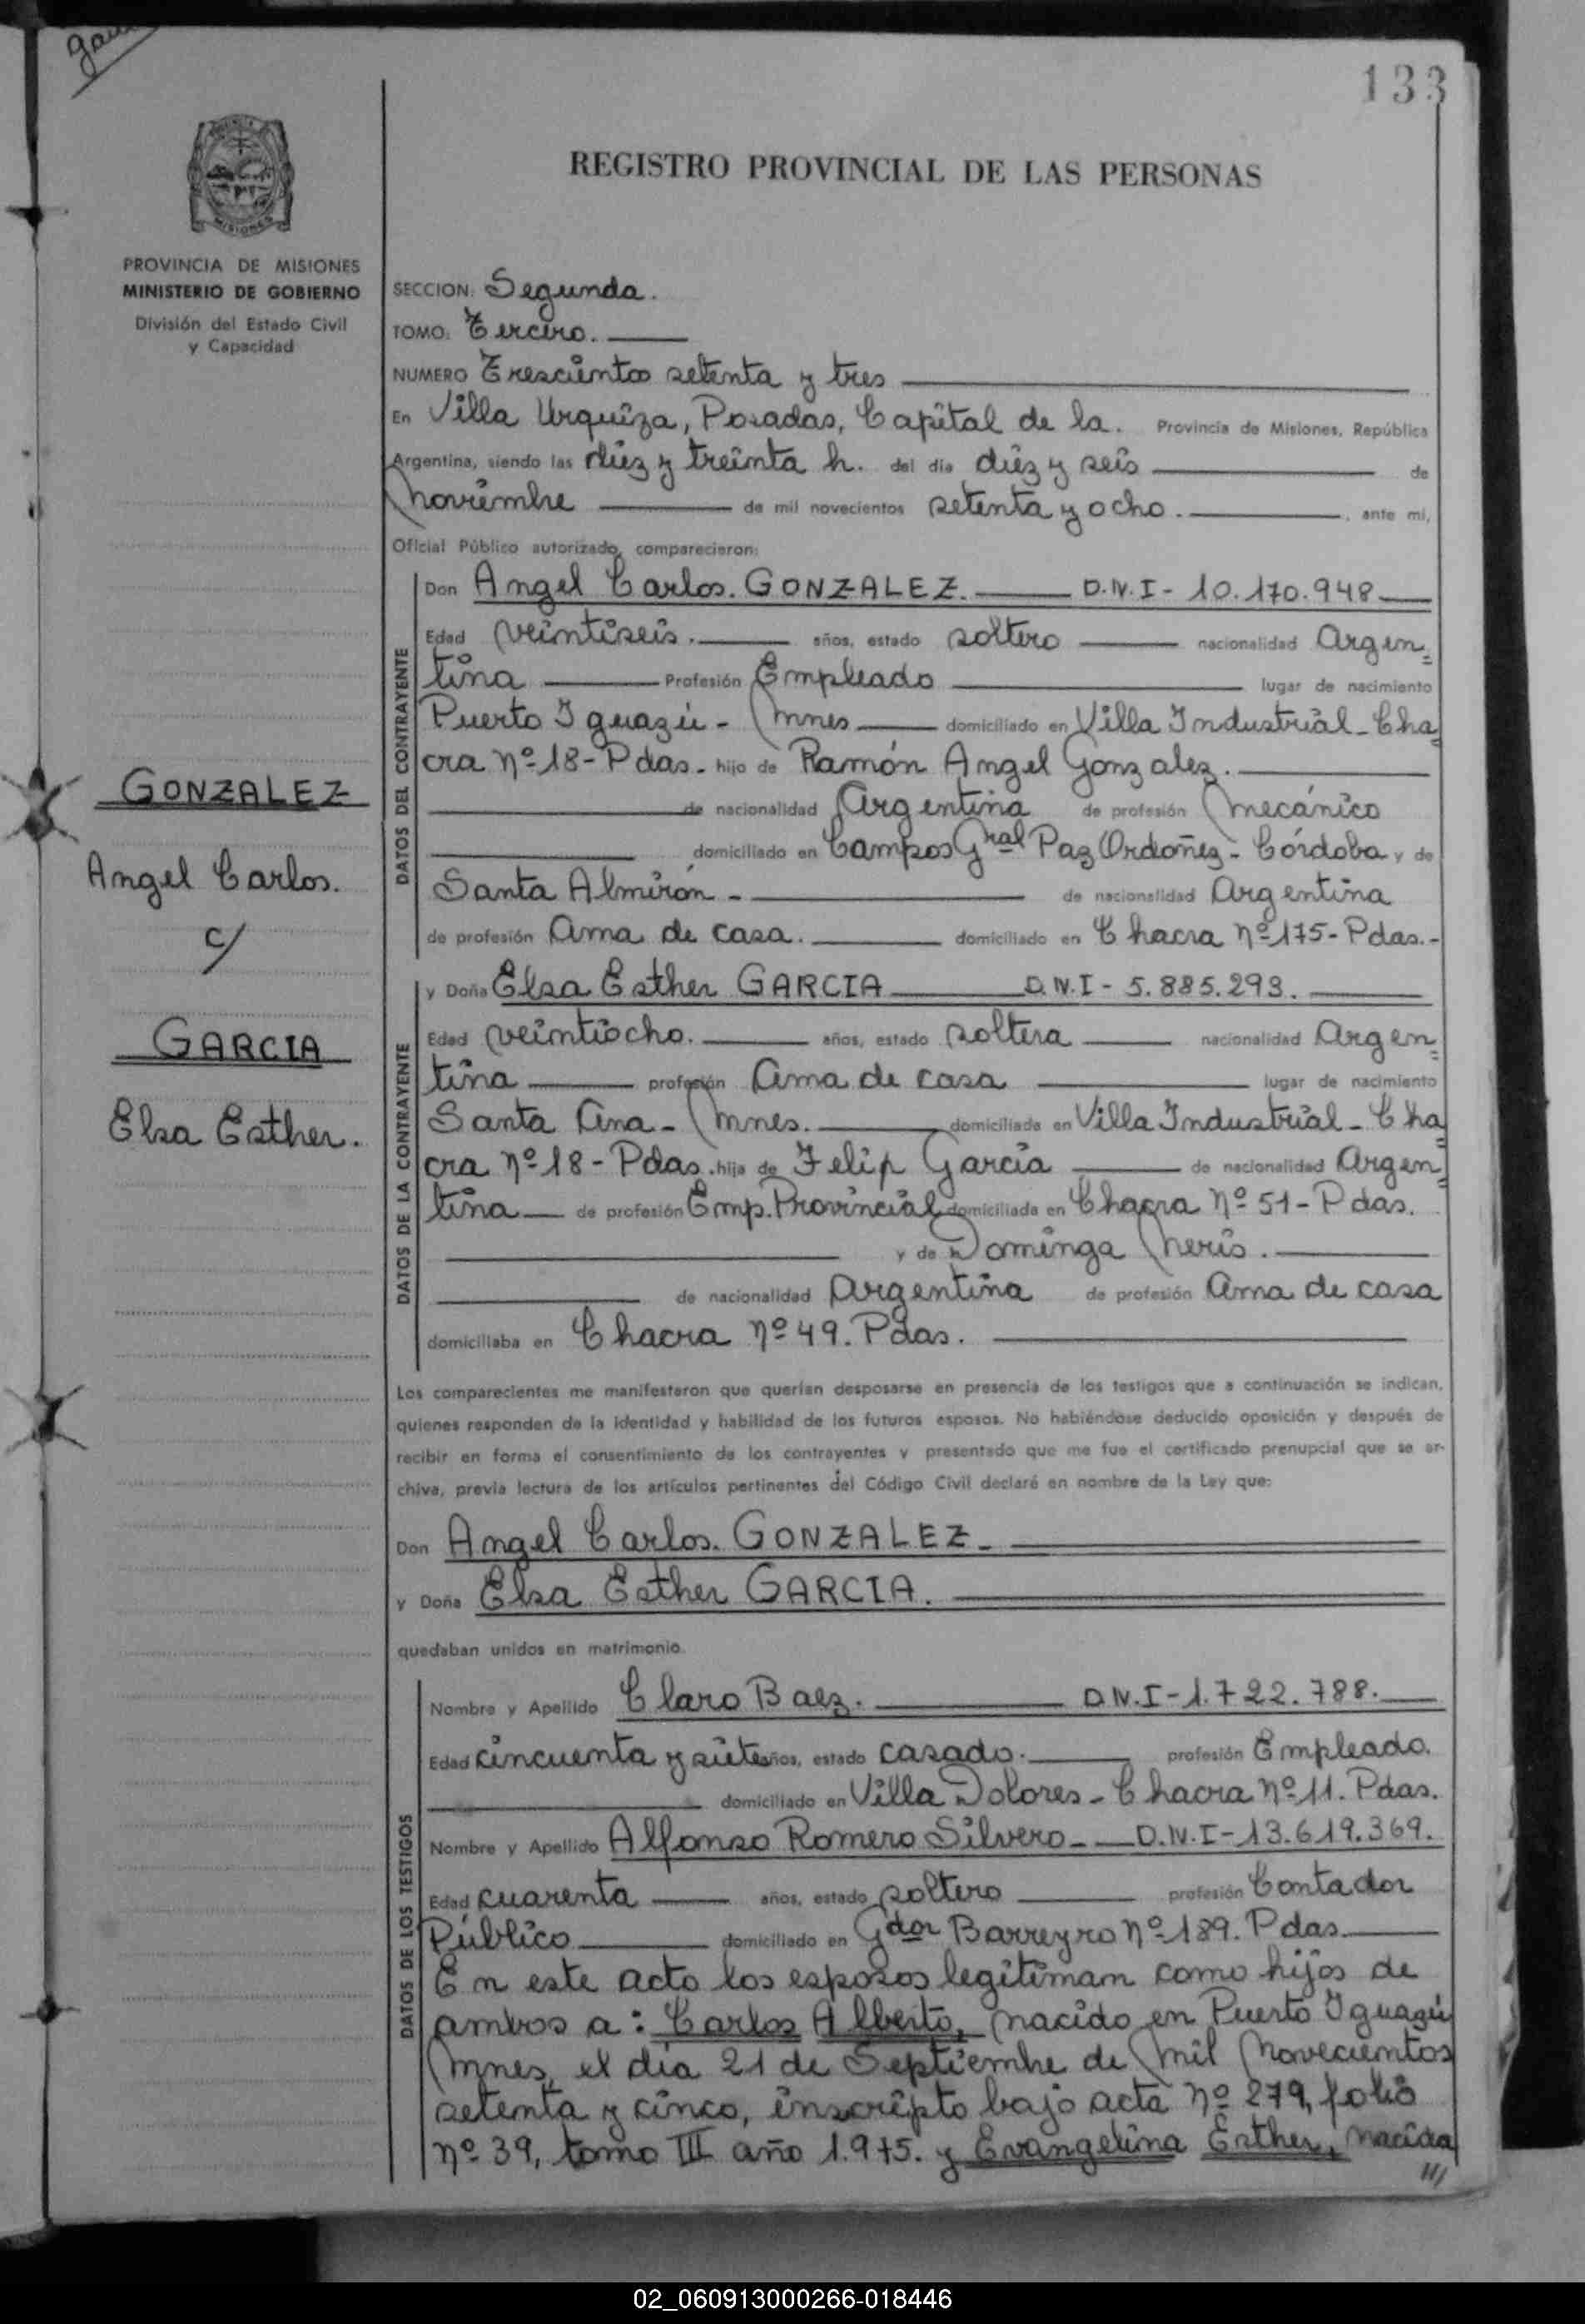 133
REGISTRO PROVINCIAL DE LAS PERSONAS
MISIONES
PROVINCIA DE MISIONES
MINISTERIO DE GOBIERNO
División del Estado Civil
y Capacidad
GONZALEZ
Angel Carlos.
c/
GARCIA
Elsa Esther.
SECCION: Segunda.
TOMO: Tercero.
NUMERO Trescientos setenta y tres
En Villa Urquiza, Posadas, Capital de la. Provincia de Misiones, República
Argentina, siendo las diez y treinta h. del día diez y seis de
noviembre de mil novecientos setenta y ocho. , ante mí,
Oficial Público autorizado, comparecieron:
DATOS DEL CONTRAYENTE
Don Angel Carlos. GONZALEZ. D.N.I - 10.170.948
Edad veintiseis. años, estado soltero nacionalidad Argen=
tina Profesión Empleado lugar de nacimiento
Puerto Iguazú - Mnes domiciliado en Villa Industrial - Cha=
cra Nº 18 - Pdas. hijo de Ramón Angel Gonzalez.
de nacionalidad Argentina de profesión mecánico
domiciliado en Campos Gral Paz Ordoñez - Córdoba y de
Santa Almirón - de nacionalidad Argentina
de profesión Ama de casa. domiciliado en Chacra Nº 175 - Pdas. -
DATOS DE LA CONTRAYENTE
y Doña Elsa Esther GARCIA D.N.I - 5.885.293.
Edad veintiocho. años, estado soltera nacionalidad Argen=
tina profesión Ama de casa lugar de nacimiento
Santa Ana - Mnes. domiciliada en Villa Industrial - Cha=
cra Nº 18 - Pdas. hija de Felip García de nacionalidad Argen=
tina de profesión Emp. Provincial domiciliada en Chacra Nº 51 - Pdas.
y de Dominga Neris.
de nacionalidad Argentina de profesión Ama de casa
domiciliaba en Chacra Nº 49. Pdas.
Los comparecientes me manifestaron que querían desposarse en presencia de los testigos que a continuación se indican,
quienes responden de la identidad y habilidad de los futuros esposos. No habiéndose deducido oposición y después de
recibir en forma el consentimiento de los contrayentes y presentado que me fue el certificado prenupcial que se ar-
chiva, previa lectura de los artículos pertinentes del Código Civil declaré en nombre de la Ley que:
Don Angel Carlos. GONZALEZ -
y Doña Elsa Esther GARCIA.
quedaban unidos en matrimonio.
DATOS DE LOS TESTIGOS
Nombre y Apellido Claro Baez. D.N.I - 1.722.788.
Edad cincuenta y siete años, estado casado. profesión Empleado.
domiciliado en Villa Dolores - Chacra Nº 11. Pdas.
Nombre y Apellido Alfonso Romero Silvero - D.N.I - 13.619.369.
Edad cuarenta años, estado soltero profesión Contador
Público domiciliado en Gdor Barreyro Nº 189. Pdas.
En este acto los esposos legitiman como hijos de
ambos a: Carlos Alberto, nacido en Puerto Iguazú
Mnes, el día 21 de Septiembre de mil novecientos
setenta y cinco, inscripto bajo acta Nº 279, folio
Nº 39, tomo III año 1.975. y Evangelina Esther, nacida
///
02_060913000266-018446